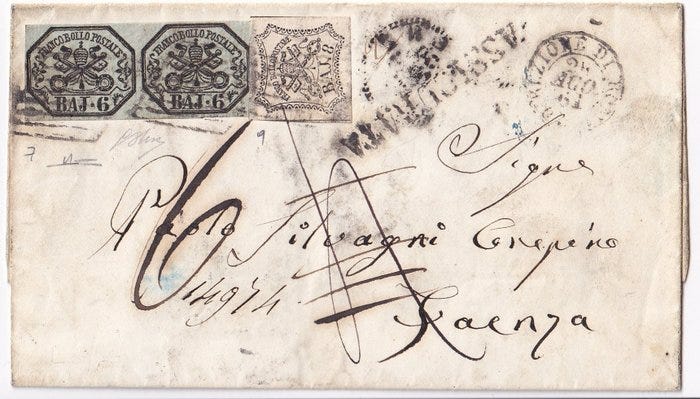 FRANCO BOLLO POSTALE
BAJ·6
FRANCO BOLLO POSTALE
BAJ·6
BAJ 8
ASSICURATA
DIREZIONE DI
AGO
7
9
6
Sigre
Paolo Silvagni
14974
Faenza